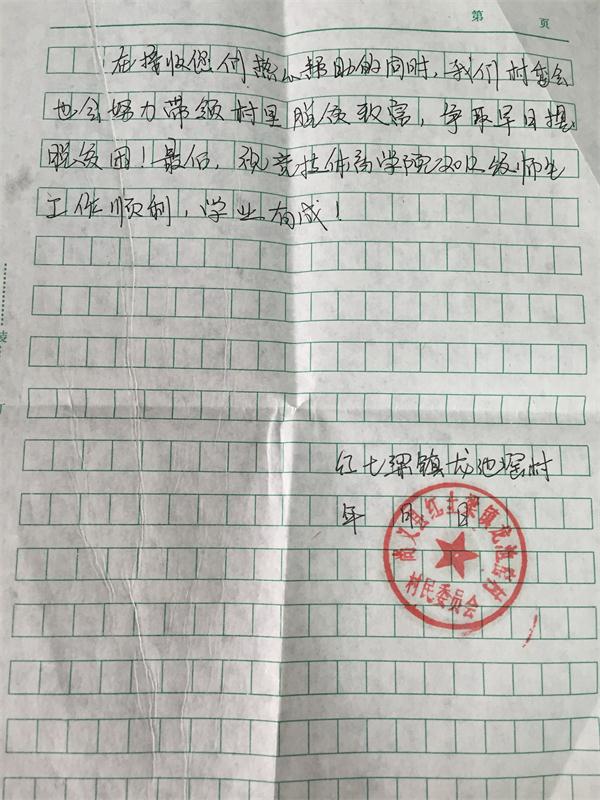 第 页
在接收您们热心帮助的同时,我们村委会
也会努力带领村里脱贫致富,争取早日摆
脱贫困!最后,祝竞技体育学院2012级师生
工作顺利,学业有成!
红土梁镇龙池窑村
年 月 日
尚义县红土梁镇龙池窑村
村民委员会
装
订